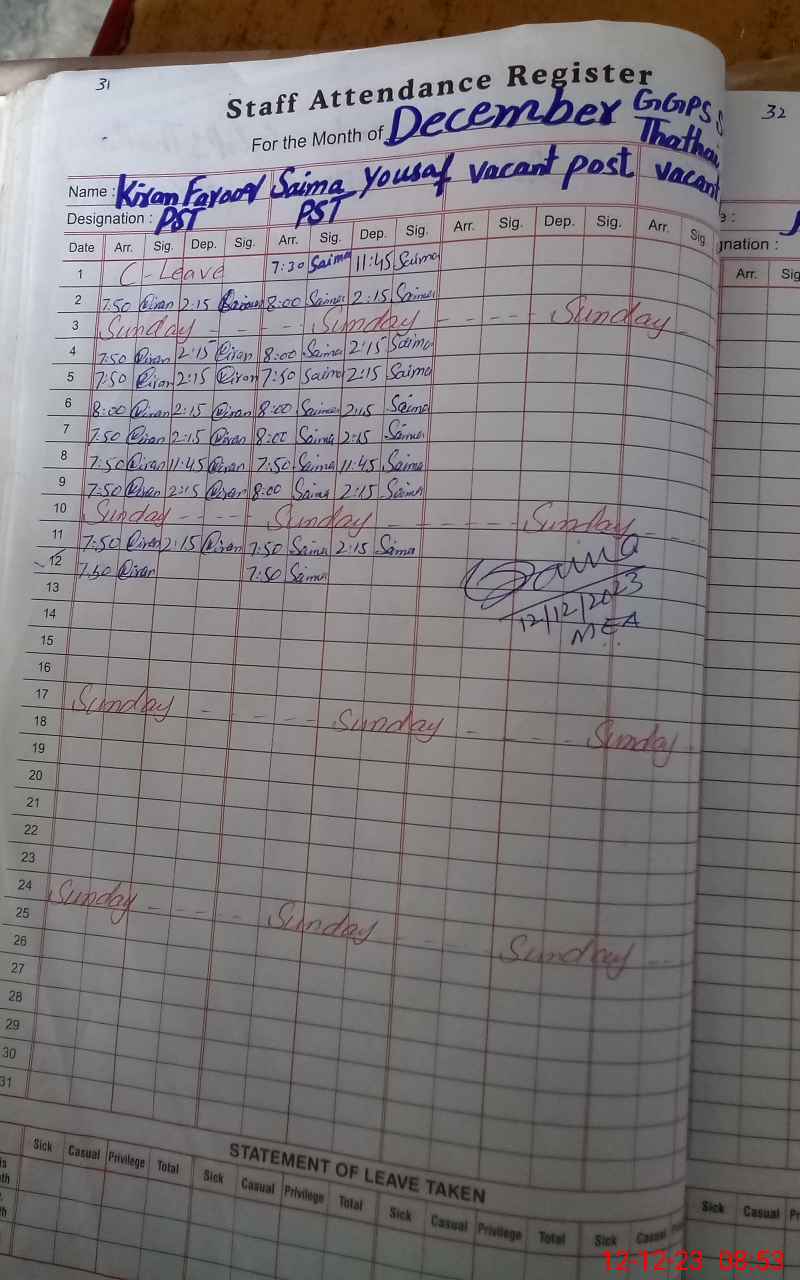 31
Staff Attendance Register
32
For the Month of December GGPS
Thathai
Name : Kiran Farooq Saima Yousaf vacant post vacant
Designation : PST PST
gnation :
Date Arr. Sig. Dep. Sig. Arr. Sig. Dep. Sig. Arr. Sig. Dep. Sig. Arr. Sig.
Arr. Sig
1 C-Leave 7:30 Saima 11:45 Saima
2 7:50 Kiran 2:15 Kiran 8:00 Saima 2:15 Saima
3 Sunday - - - - Sunday - - - - Sunday
4 7:50 Kiran 2:15 Kiran 8:00 Saima 2:15 Saima
5 7:50 Kiran 2:15 Kiran 7:50 Saima 2:15 Saima
6 8:00 Kiran 2:15 Kiran 8:00 Saima 2:15 Saima
7 7:50 Kiran 2:15 Kiran 8:00 Saima 2:15 Saima
8 7:50 Kiran 11:45 Kiran 7:50 Saima 11:45 Saima
9 7:50 Kiran 2:15 Kiran 8:00 Saima 2:15 Saima
10 Sunday - - - - Sunday - - - - - Sunday
11 7:50 Kiran 2:15 Kiran 7:50 Saima 2:15 Saima
12 7:50 Kiran 7:50 Saima
12/12/2023
MEA
13
14
15
16
17 Sunday - - - - - Sunday - - - - Sunday
18
19
20
21
22
23
24 Sunday - - - - - Sunday - - - Sunday - -
25
26
27
28
29
30
31
STATEMENT OF LEAVE TAKEN
Sick Casual Privilege Total Sick Casual Privilege Total Sick Casual Privilege Total Sick Casual
Sick Casual
12-12-23 08:53